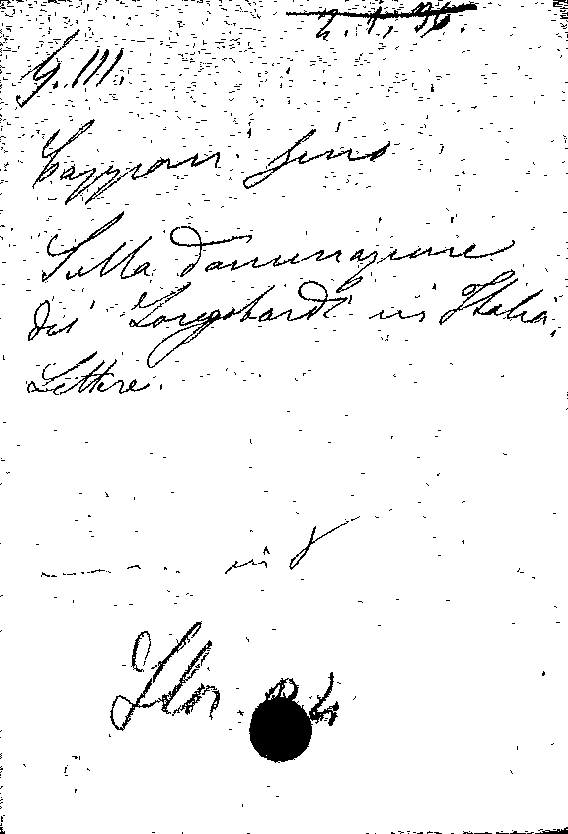 2. 1. 36.
G. III.
Capponi Gino
Sulla Dominazione
dei Longobardi in Italia,
Lettere.
in 8
Flor.